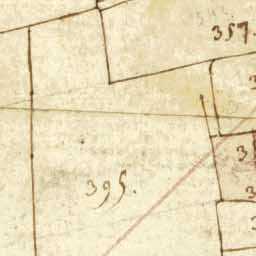 357.
3
3
395.
3